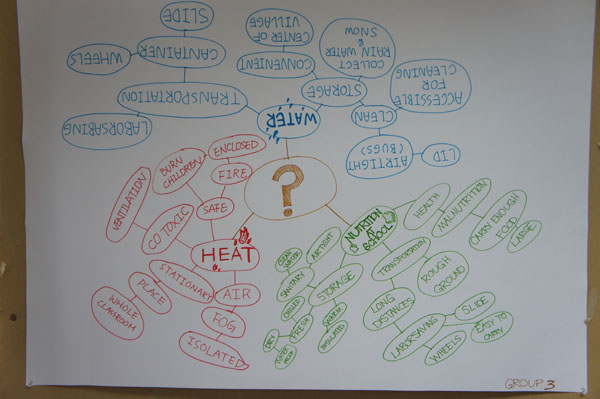 SLIDE
CANTAINER
WHEELS
TRANSPORTATION
LABORSABING
WATER
CENTER OF
VILLAGE
CONVENIENT
STORAGE
COLLECT
RAIN WATER
& SNOW
CLEAN
ACCESSIBLE
FOR
CLEANING
AIRTIGHT
(BUGS)
LID
?
ENCLOSED
FIRE
BURN
CHILDREN
SAFE
VENTILATION
CO TOXIC
HEAT
STATIONARY
PLACE
WHOLE
CLASSROOM
AIR
FOG
ISOLATED
NUTRITION
AT
SCHOOL
HEALTH
MALNUTRITION
CARRY ENOUGH
FOOD
LARGE
TRANSPORTATION
ROUGH
GROUND
LONG
DISTANCES
LABORSAVING
SLIDE
WHEELS
EASY TO
STORAGE
AIRTIGHT
SANITARY
CLEAN
WATER
CHILLED
FRESH
DRY
WARM
INSULATED
GROUP 3